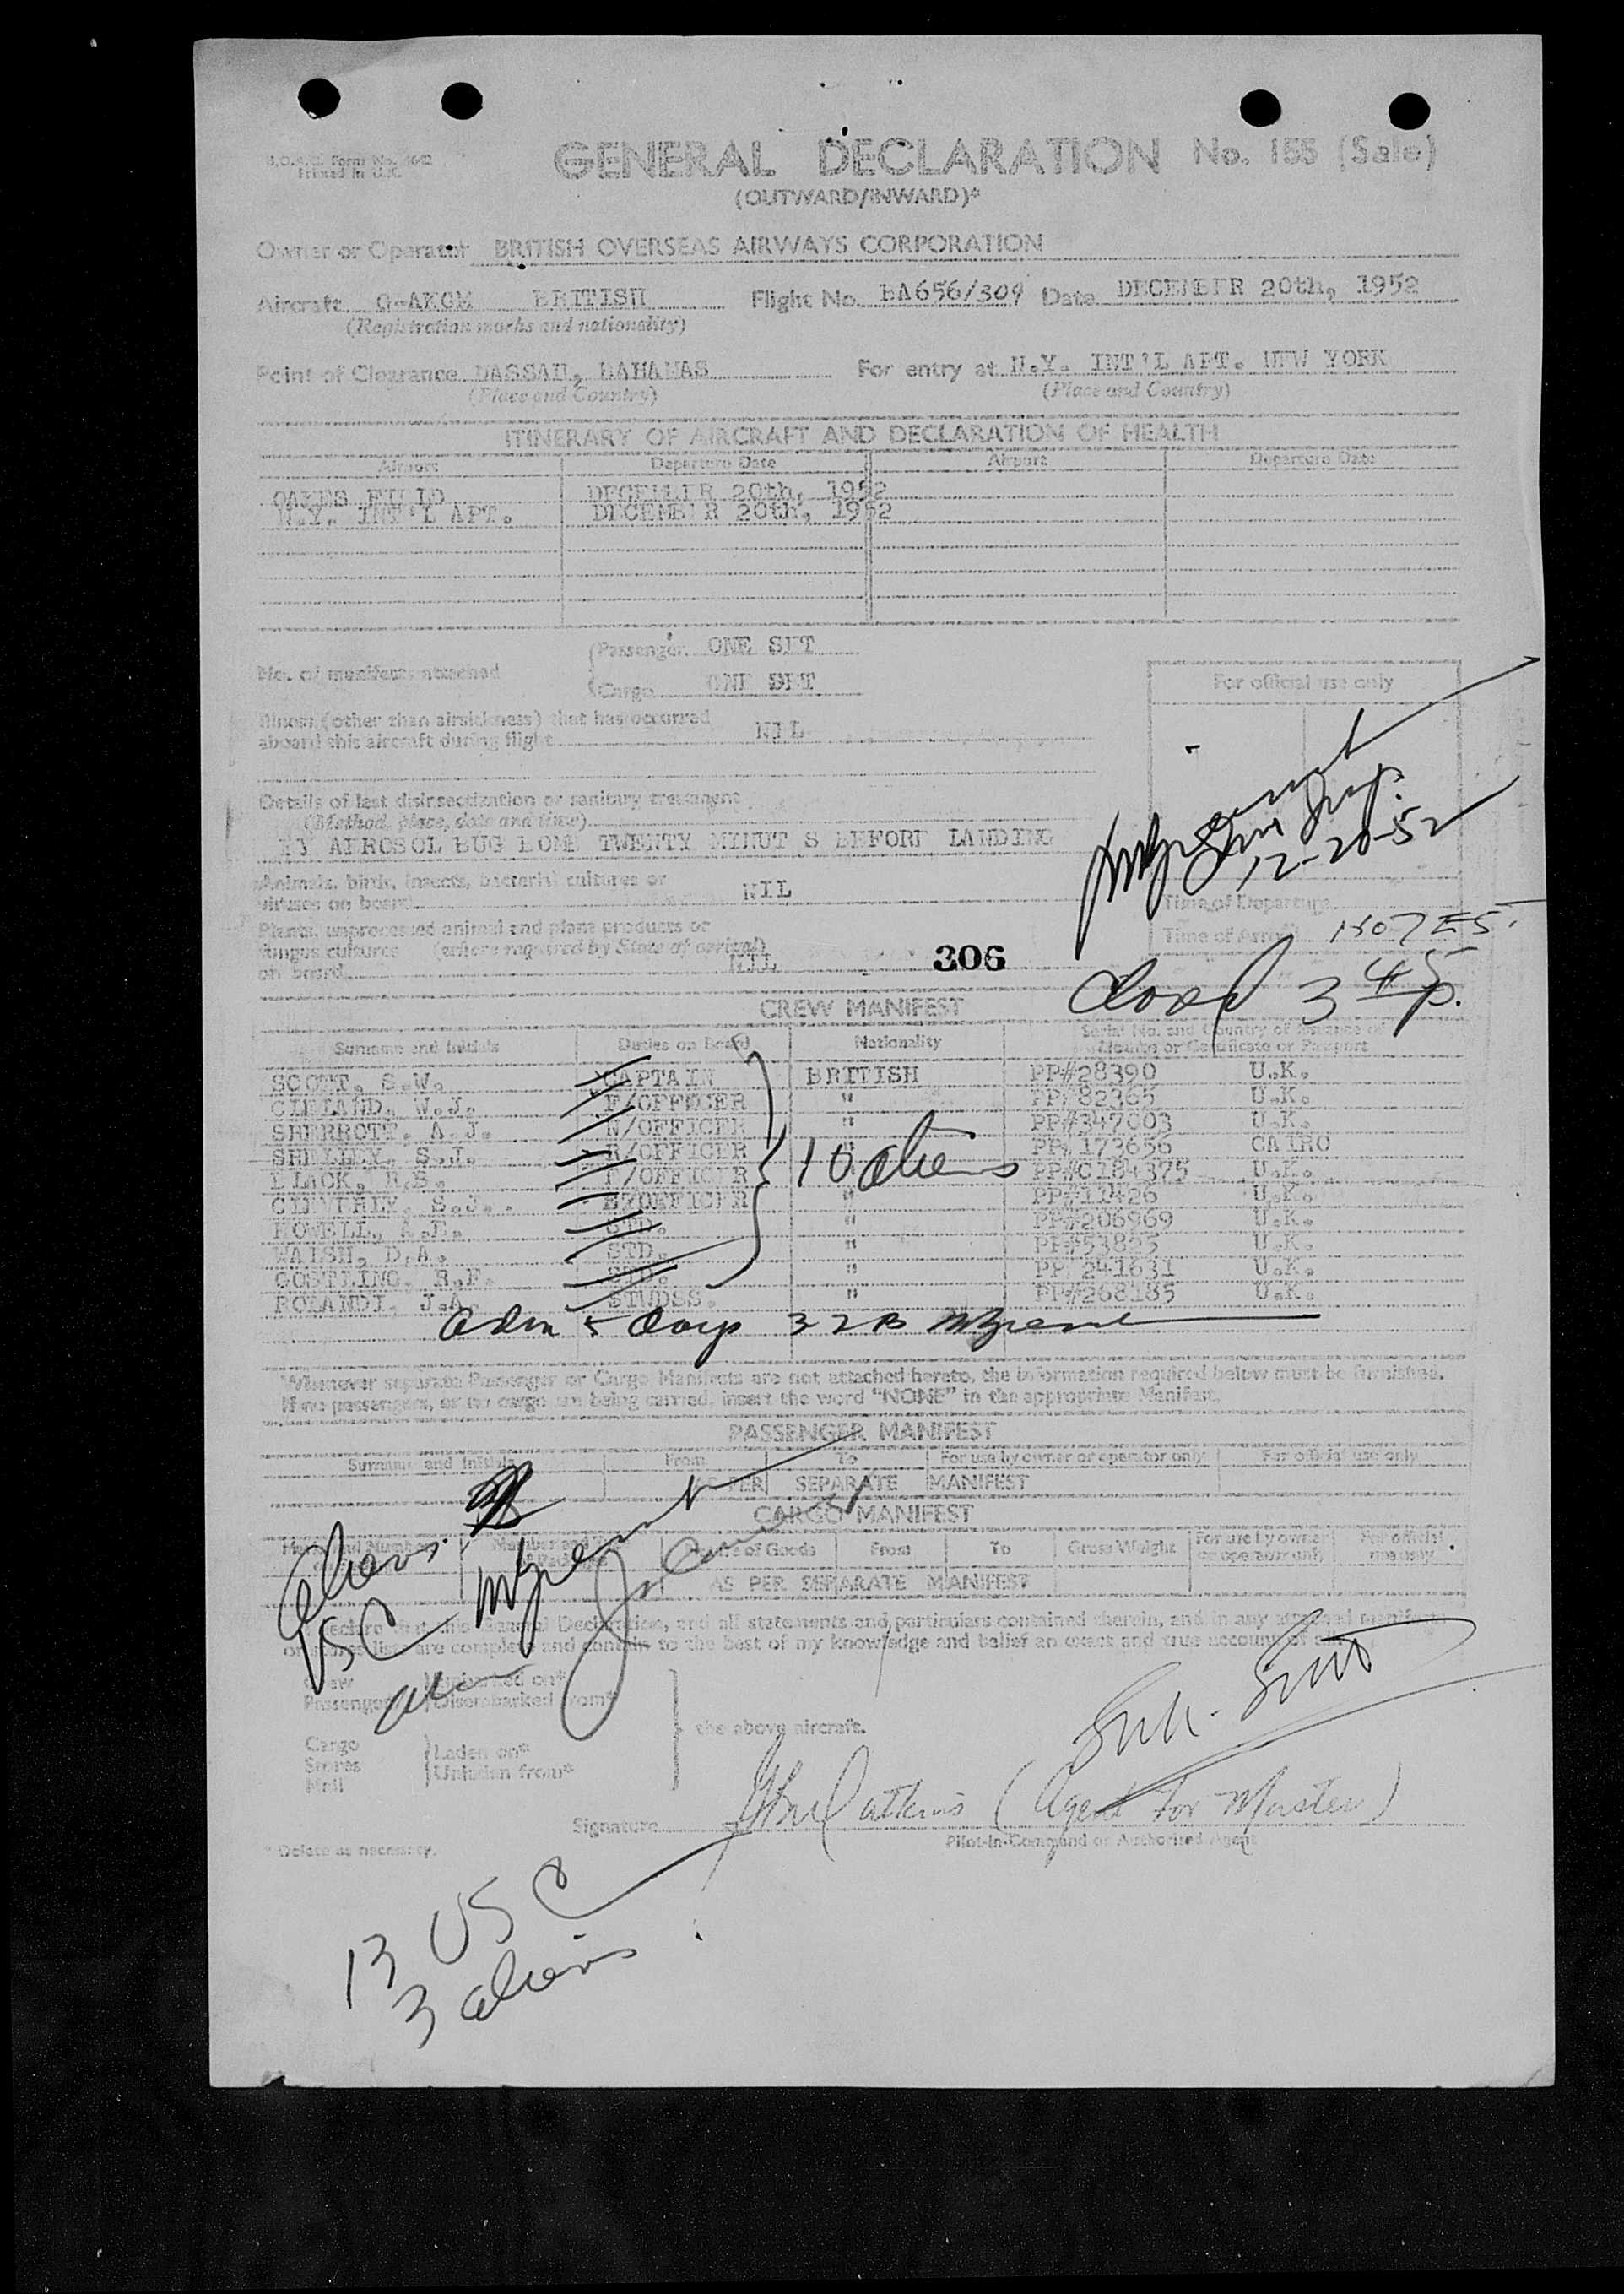 B.O.A.C. Form No. 1642
Printed in U.K.
GENERAL DECLARATION No. 155 (Sale)
(OUTWARD/INWARD)*
Owner or Operator BRITISH OVERSEAS AIRWAYS CORPORATION
Aircraft G-AKGM BRITISH Flight No. BA656/309 Date DECEMBER 20th, 1952
(Registration marks and nationality)
Point of Clearance NASSAU, BAHAMAS For entry at N.Y. INT'L APT. NEW YORK
(Place and Country) (Place and Country)
ITINERARY OF AIRCRAFT AND DECLARATION OF HEALTH
Airport Departure Date Airport Departure Date
OAKES FIELD DECEMBER 20th, 1952
N.Y. INT'L APT. DECEMBER 20th, 1952
No. of manifests attached
Passenger ONE SET
Cargo ONE SET
For official use only
Illness (other than airsickness) that has occurred
aboard this aircraft during flight NIL
Details of last disinsectization or sanitary treatment
(Method, place, date and time)
BY AEROSOL BUG BOMB TWENTY MINUTES BEFORE LANDING
12-20-52
Animals, birds, insects, bacterial cultures or
viruses on board NIL
Time of Departure
Plants, unprocessed animal and plant products or
fungus cultures (where required by State of arrival)
on board NIL
306
Time of Arrival 1507 EST
Closed 3 45 p.
CREW MANIFEST
Surname and Initials Duties on Board Nationality Serial No. and Country of Issuance of
Licence or Certificate or Passport
SCOTT, S.W. CAPTAIN BRITISH PP#28390 U.K.
CLELAND, W.J. F/OFFICER " PP#82365 U.K.
SHERROTT, A.J. N/OFFICER " PP#347003 U.K.
SHELLEY, S.J. R/OFFICER " PP#173656 CAIRO
BLACK, R.S. E/OFFICER " PP#C184375 U.K.
S.J. E/OFFICER " PP#11426 U.K.
HOWELL, A.E. STD. " PP#206969 U.K.
WALSH, D.A. STD. " PP#53825 U.K.
GOSTLING, R.F. STD. " PP#241631 U.K.
ROLANDI, J.A. STUDSS. " PP#268185 U.K.
10 aliens
Adm 5 days 32B
Whenever separate Passenger or Cargo Manifests are not attached hereto, the information required below must be furnished.
If no passengers, or no cargo are being carried, insert the word "NONE" in the appropriate Manifest.
PASSENGER MANIFEST
Surname and Initials From To For use by owner or operator only For official use only
AS PER SEPARATE MANIFEST
CARGO MANIFEST
Marks and Numbers Number and Packages Nature of Goods From To Gross Weight For use by owner or operator only For official use only
AS PER SEPARATE MANIFEST
Aliens
USC
I declare that this General Declaration, and all statements and particulars contained therein, and in any attached manifests
or stores lists are complete and contain to the best of my knowledge and belief an exact and true account of all
Crew
Passengers
Embarked on*
Disembarked from*
the above aircraft.
Cargo
Stores
Mail
Laden on*
Unladen from*
Signature Watkins (Agent for Master)
Pilot-in-Command or Authorised Agent
* Delete as necessary.
13 USC
3 aliens